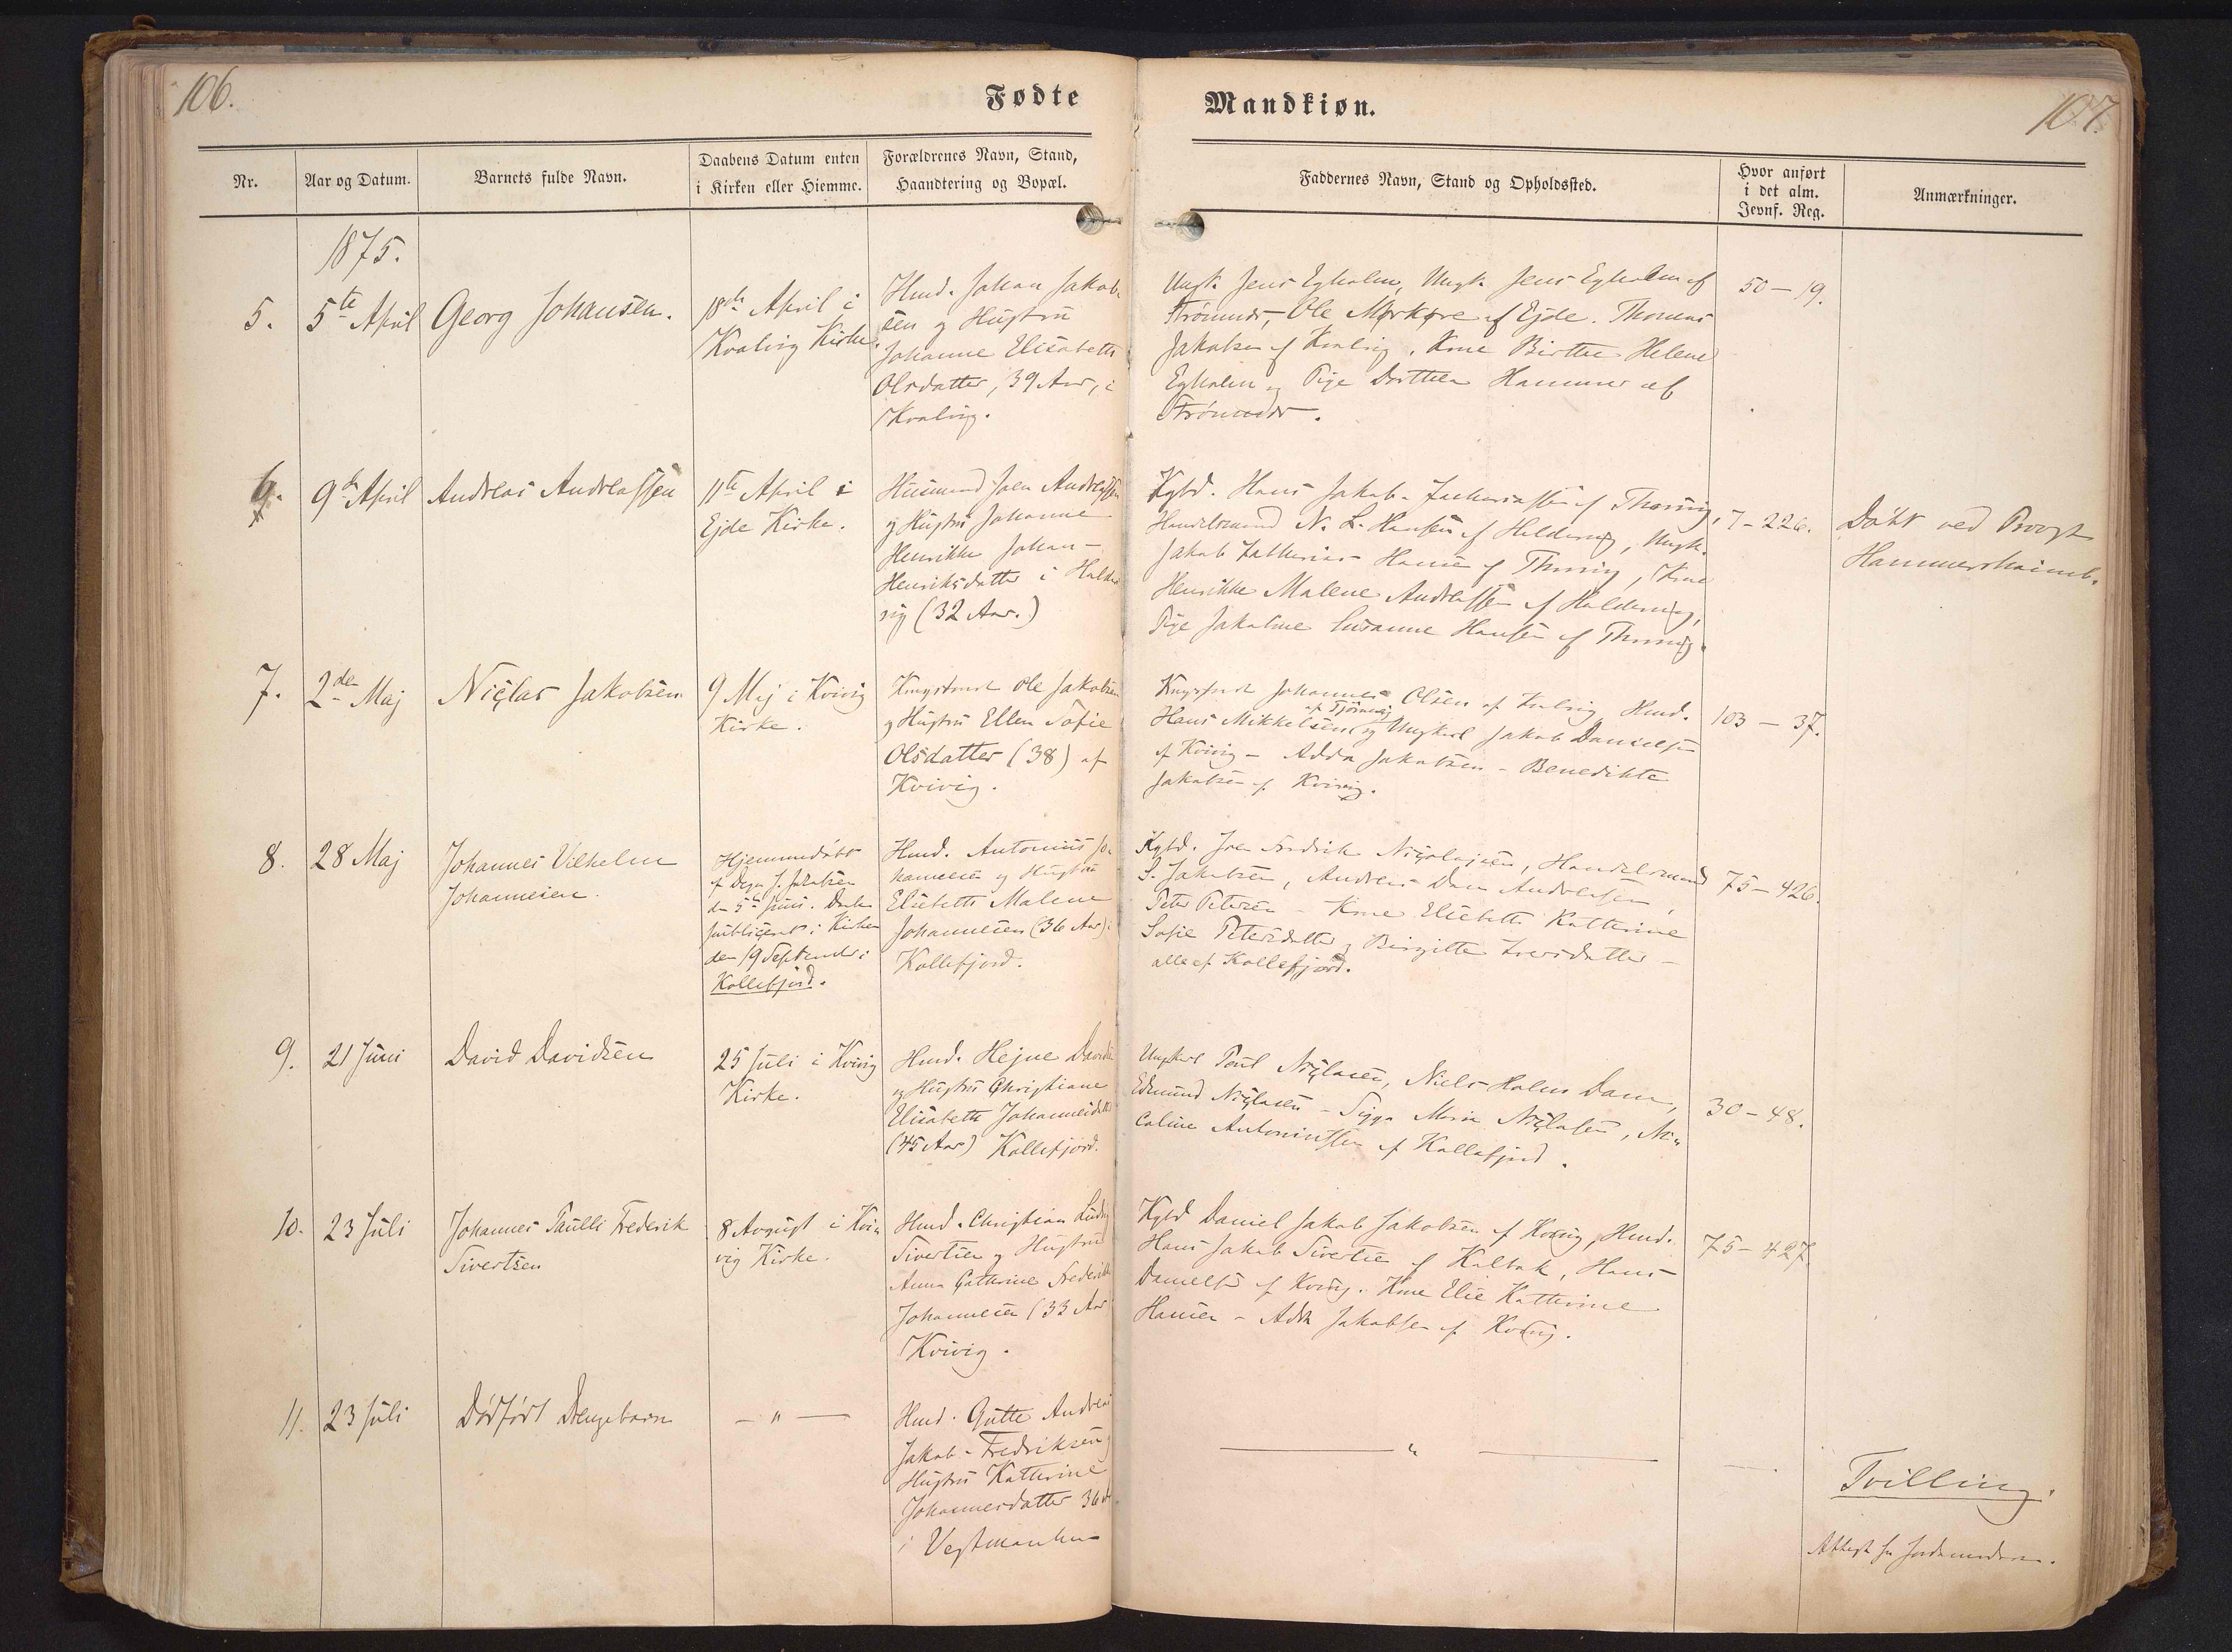 106.
Fødte
Mandkiøn.
107.
Nr.
Aar og Datum.
Barnets fulde Navn.
Daabens Datum enten
i Kirken eller Hiemme.
Forældrenes Navn, Stand,
Haandtering og Bopæl.
Faddernes Navn, Stand og Opholdssted.
Hvor anført
i det alm.
Jevnf. Reg.
Anmærkninger.
1875.
5.
5te April
Georg Johansen.
18de April i
Kvalvig Kirke.
Hmd. Johan Jakob-
sen og Hustru
Johanne Elisabeth
Olsdatter, 39 Aar, i
Kvalvig.
Ungk. Jens Egholm, Ungk. Jens Egholm af
Strömnæs, Ole Mørkøre af Ejde. Thomas
Jakobsen af Kvalvig. Kone Birthe Helene
Egholm og Pige Dorthea Hammer af
Strömnæs.
50 – 19.
6.
9de April
Andreas Andreassen
11te April i
Ejde Kirke.
Husmand Joen Andreassen
og Hustru Johanne
Henrikke Johan-
Henriksdatter i Halder
vig (32 Aar.)
Kgbd. Hans Jakob Zachariassen af Thorvig,
Handelsmand N. L. Hansen af Haldervig, Ungk.
Jakob Zacharias Hansen af Thorvig, Kone
Henrikke Malene Andreassen af Haldervig,
Pige Jakobine Susanne Hansen af Thorvig.
7 – 226.
Döbt ved Provst
Hammershaimb.
7.
2den Maj
Niclas Jakobsen
9 Maj i Kvivig
Kirke.
Ole Jakobsen
og Hustru Ellen Sofie
Olsdatter (38) af
Kvivig.
Johannes Olsen af Kvalvig Hmd.
af Tjörnevig
Hans Mikkelsen og Ungkarl Jakob Danielsen
af Kvivig – Adda Jakobsen – Benedikte
Jakobsen af Kvivig.
103 – 37.
8.
28 Maj
Johannes Vilhelm
Johannesen.
Hjemmedöbt
af Degn J. Jakobsen
den 5te Juni. Daaben
publiceret i Kirken
den 19 September i
Kollefjord.
Hmd. Antonius Jo-
hannesen og Hustru
Elsebeth Malene
Johannesen (36 Aar) i
Kollefjord.
Kgbd. Joen Fredrik Nicolajsen, Handelsmand
S. Jakobsen, Andreas Dam Andreasen,
Peter Petersen – Kone Elsebeth Katherine
Sofie Petersdatter og Birgitte
alle af Kollefjord.
75 – 426.
9.
21 Juni
David Davidsen
25 Juli i Kvivig
Kirke.
Hmd. Hejne Davidsen
og Hustru Christiane
Elisabeth Johannesdatter
(45 Aar) Kollefjord.
Ungkarl Poul Niclasen, Niels Holm Dam,
Edmund Niclasen – Sigga Maria Niclasen, Ni-
coline Antoniussen af Kollefjord.
30 – 48.
10.
23 Juli
Johannes Paulli Frederik
Sivertsen
8 August i Kvi-
vig Kirke.
Hmd. Christian Ludvig
Sivertsen og Hustru
Anna Cathrine Frederikke
Johannesen (33 Aar)
Kvivig.
Kgbd Daniel Jakob Jakobsen af Kvivig, Hmd.
Hans Jakob Sivertsen af Kaldbak, Hans
Danielsen af Kvivig. Kone Else Katherine
Hansen – Adda Jakobsen af Kvivig.
75 – 427.
11.
23 Juli
Dödfödt Drengebarn
— " —
Hmd. Gutte Andreas
Jakob Fredriksen og
Hustru Katherine
Johannesdatter 36 Aar
i Vestmanhavn
— " —
Tvilling.
Attest fra Jordemoderen.